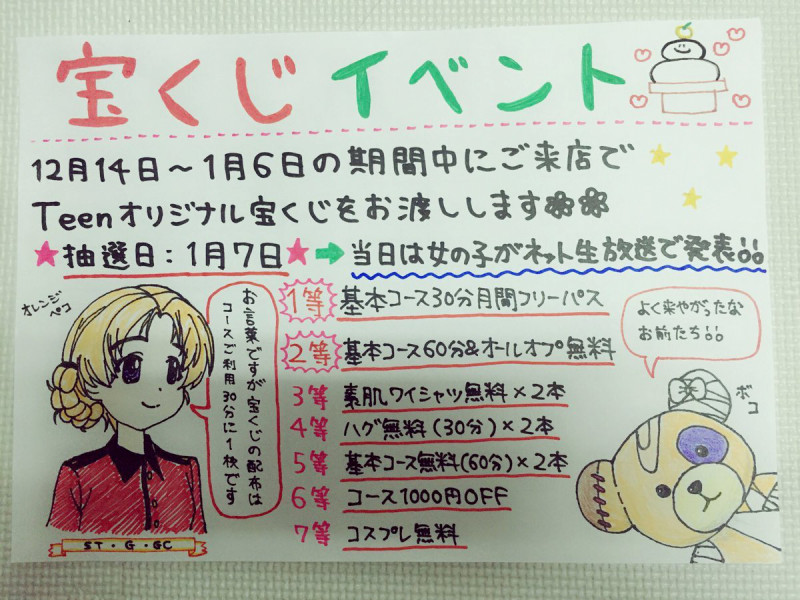 宝くじイベント
12月14日～1月6日の期間中にご来店で
Teenオリジナル宝くじをお渡しします
抽選日：1月7日
当日は女の子がネット生放送で発表!!
オレンジペコ
お言葉ですが宝くじの配布は
コースご利用30分に1枚です
ST・G・GC
1等 基本コース30分月間フリーパス
2等 基本コース60分&オールオプ無料
3等 素肌ワイシャツ無料×2本
4等 ハグ無料(30分)×2本
5等 基本コース無料(60分)×2本
6等 コース1000円OFF
7等 コスプレ無料
よく来やがったな
お前たち!!
ボコ